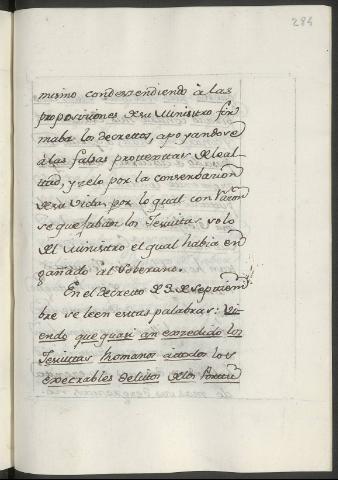 284
mismo condessendiendo à las
proposiciones de su Ministro fir
maba los decretos, apoyandose
à las falsas protestas de leal
tad, y zelo por la conservacion
de su vida, por lo qual con razon
se quejaban los Jesuitas solo
del Ministro el qual habia en
gañado al Soberano.
En el decreto de 3. de Septiem
bre se leen estas palabras: Vi
endo que quasi an excedido los
Jesuitas Romanos à todos los
execrables delitos de los Portu